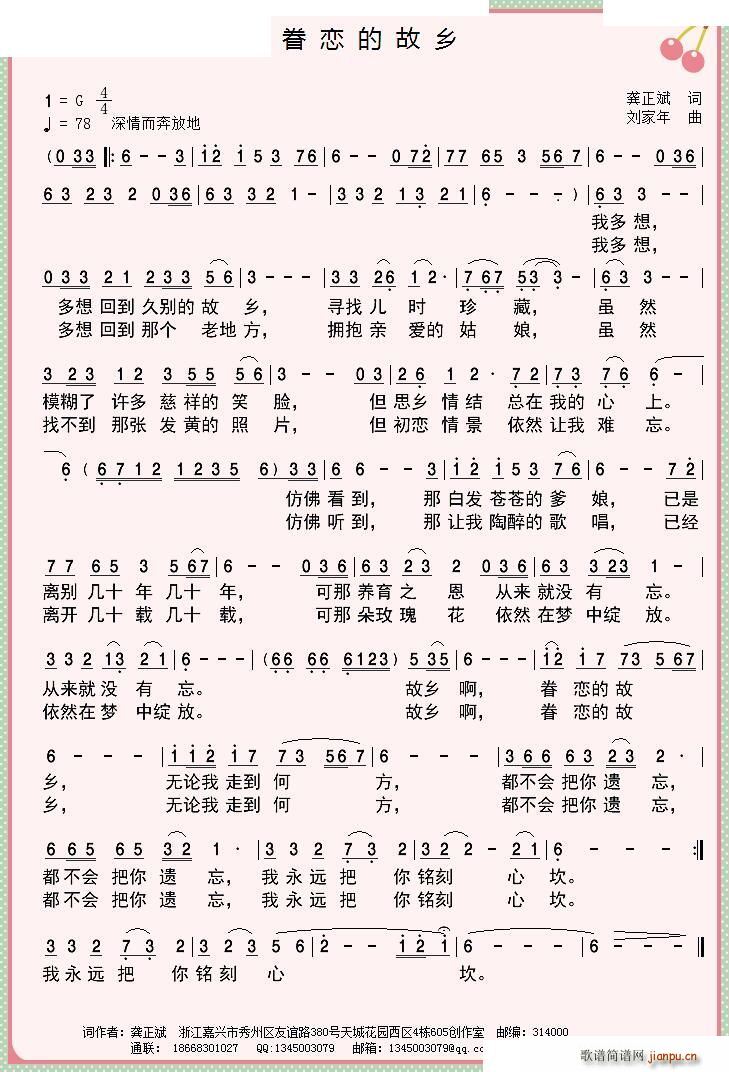 眷恋的故乡
1 = G 4/4
龚正斌 词
♩ = 78 深情而奔放地
刘家年 曲
(0 33 ‖: 6 - - 3 | i2 i5 3 76 | 6 - - 072 | 77 65 3 567 | 6 - - 036 |
63 23 2 036 | 63 32 1 - | 332 13 21 | 6 - - · ) | 63 3 - - |
我多想，
我多想，
033 21 233 56 | 3 - - - | 33 26 12· | 767 533 - | 63 3 - - |
多想回到久别的故 乡， 寻找儿 时 珍 藏， 虽 然
多想回到那个 老地方， 拥抱亲 爱的姑 娘， 虽 然
323 12 335 56 | 3 - - 03 | 26 12· 72 | 73 76 6 - |
模糊了 许多慈祥的笑 脸， 但思乡情结 总在我的心上。
找不到 那张发黄的照 片， 但初恋情景 依然让我难忘。
6 (6712 1235 6) 33 | 6 6 - - 3 | i2 i53 76 | 6 - - 72 |
仿佛看到， 那白发苍苍的爹 娘， 已是
仿佛听到， 那让我陶醉的歌 唱， 已经
77 65 3 567 | 6 - - 036 | 63 23 2 036 | 63 323 1 - |
离别几十年几十年， 可那养育之 恩 从来就没有 忘。
离开几十载几十载， 可那朵玫瑰 花 依然在梦中绽 放。
332 13 21 | 6 - - - | (66 66 6123) | 5 35 6 - - | i2 i7 73 567 |
从来就没有忘。 故乡啊， 眷 恋的故
依然在梦中绽放。 故乡啊， 眷 恋的故
6 - - - | ii2 i7 73 567 | 6 - - - | 366 63 23 2· |
乡， 无论我走到何 方， 都不会把你遗 忘，
乡， 无论我走到何 方， 都不会把你遗 忘，
665 65 32 1· | 332 73 2 | 322 - 21 | 6 - - - :‖
都不会 把你遗 忘， 我永远把 你铭刻 心 坎。
都不会 把你遗 忘， 我永远把 你铭刻 心 坎。
332 73 2 | 323 3 - | 2 - - i2i | 6 - - - | 6 - - - ‖
我永远把 你铭刻 心 坎。
词作者：龚正斌 浙江嘉兴市秀州区友谊路380号天城花园西区4栋605创作室 邮编：314000
通联： 18668301027 QQ:1345003079 邮箱：1345003079@qq.c
歌谱简谱网
jianpu.cn